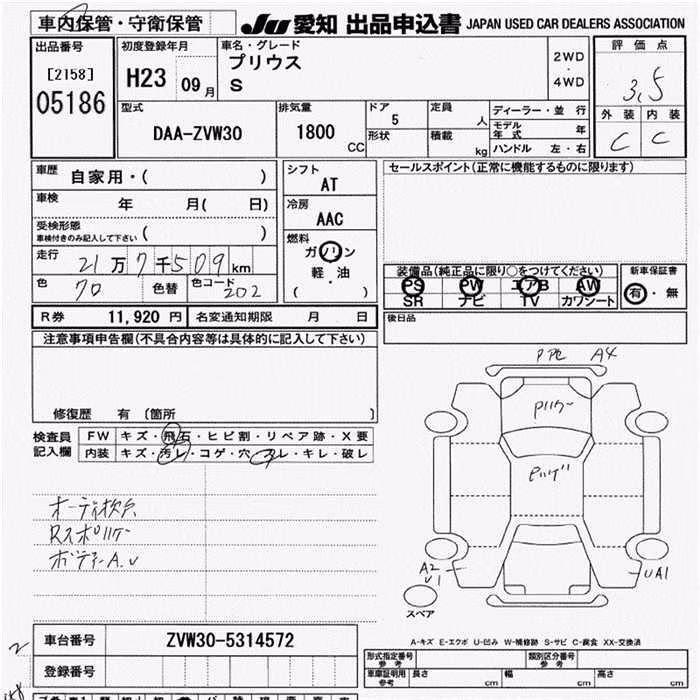 車内保管・守衛保管
JU 愛知 出品申込書 JAPAN USED CAR DEALERS ASSOCIATION
出品番号
[2158]
05186
初度登録年月
H23 09 月
車名・グレード
プリウス
S
2WD
・
4WD
評価点
3.5
外装 内装
C C
型式
DAA-ZVW30
排気量
1800
CC
ドア
5
形状
定員
人
積載
kg
ディーラー・並行
モデル年式 年
ハンドル 左・右
車歴
自家用・( )
車検
年 月( 日)
受検形態
車検付きのみ記入して下さい ( )
走行
21万7千509km
色
70
色替
色コード
202
シフト
AT
冷房
AAC
燃料
ガソリン
・
軽・油
( )
セールスポイント(正常に機能するものに限ります)
装備品(純正品に限り○をつけてください)
PS PW エアB AW
SR ナビ TV カワシート
新車保証書
有・無
後日品
R券 11,920 円 名変通知期限 月 日
注意事項申告欄(不具合内容等は具体的に記入して下さい)
修復歴 有 〔箇所 〕
検査員
記入欄
FW キズ・飛石・ヒビ割・リペア跡・X要
内装 キズ・汚レ・コゲ・穴・スレ・キレ・破レ
オーディオ欠
Rスポ
ボディーA.U
A4
A2
U1
UA1
スペア
A-キズ E-エクボ U-凹み W-補修跡 S-サビ C-腐食 XX-交換済
2
車台番号 ZVW30-5314572
登録番号
形式指定番号
参考
類別区分番号
参考
車庫証明用
参考
長さ cm 幅 cm 高さ cm